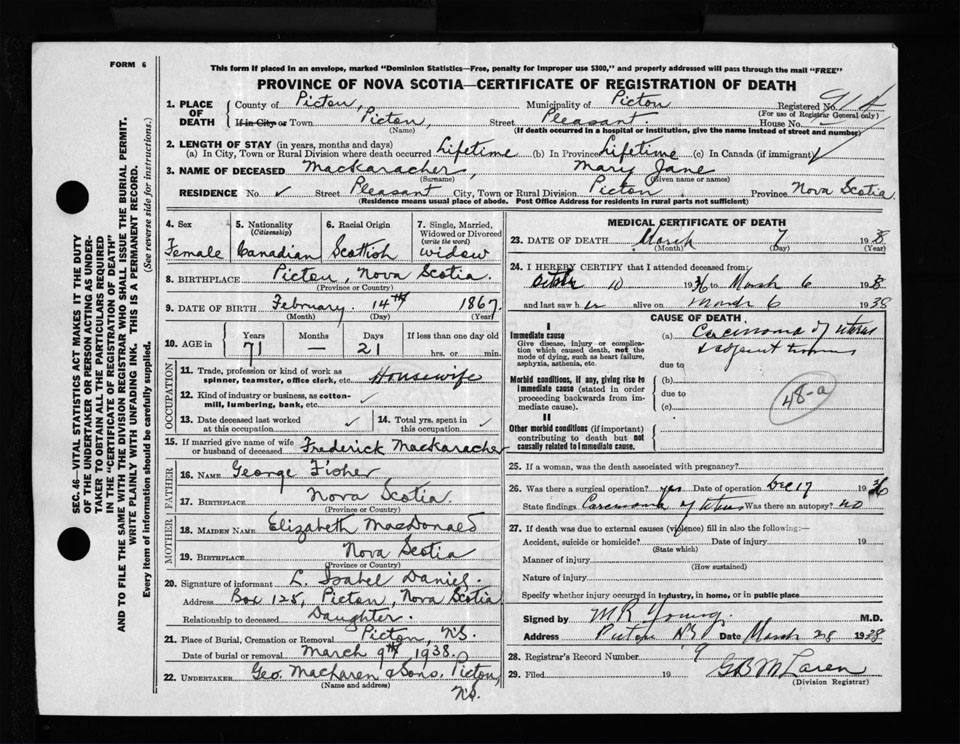 FORM 6
This form if placed in an envelope, marked "Dominion Statistics—Free, penalty for improper use $300," and properly addressed will pass through the mail "FREE"
PROVINCE OF NOVA SCOTIA—CERTIFICATE OF REGISTRATION OF DEATH
1. PLACE OF DEATH
County of Pictou, Municipality of Pictou Registered No. 914
(For use of Registrar General only)
If in City or Town Pictou, Street Pleasant. House No. -
(Name) (If death occurred in a hospital or institution, give the name instead of street and number)
2. LENGTH OF STAY (in years, months and days)
(a) In City, Town or Rural Division where death occurred Lifetime (b) In Province Lifetime (c) In Canada (if immigrant) ✓
3. NAME OF DECEASED MacKaracher, Mary Jane
(Surname) (Given name or names)
RESIDENCE No. ✓ Street Pleasant City, Town or Rural Division Pictou Province Nova Scotia
(Residence means usual place of abode. Post Office Address for residents in rural parts not sufficient)
4. Sex 5. Nationality (Citizenship) 6. Racial Origin 7. Single, Married, Widowed or Divorced (write the word)
Female Canadian Scottish widow
8. BIRTHPLACE Pictou, Nova Scotia.
(Province or Country)
9. DATE OF BIRTH February. 14th 1867.
(Month) (Day) (Year)
10. AGE in Years Months Days If less than one day old
71 — 21 hrs. or min.
OCCUPATION
11. Trade, profession or kind of work as spinner, teamster, office clerk, etc. Housewife
12. Kind of industry or business, as cotton-mill, lumbering, bank, etc. ✓
13. Date deceased last worked at this occupation ✓ 14. Total yrs. spent in this occupation ✓
15. If married give name of wife or husband of deceased Frederick MacKaracher
FATHER
16. NAME George Fisher
17. BIRTHPLACE Nova Scotia.
(Province or Country)
MOTHER
18. MAIDEN NAME Elizabeth MacDonald
19. BIRTHPLACE Nova Scotia
(Province or Country)
20. Signature of informant L. Isabel Daniel.
Address Box 125, Pictou, Nova Scotia
Relationship to deceased Daughter.
21. Place of Burial, Cremation or Removal Pictou, N.S.
Date of burial or removal March 9th 1938.
22. UNDERTAKER Geo. MacLaren & Sons, Pictou, N.S.
(Name and address)
MEDICAL CERTIFICATE OF DEATH
23. DATE OF DEATH March 7 1938
(Month) (Day) (Year)
24. I HEREBY CERTIFY that I attended deceased from:
10 1936 to March 6 1938
and last saw her alive on March 6 1938
CAUSE OF DEATH
I
Immediate cause (a) Carcinoma of uterus
Give disease, injury or complication which caused death, not the mode of dying, such as heart failure, asphyxia, asthenia, etc.
& adjacent
due to
Morbid conditions, if any, giving rise to immediate cause (stated in order proceeding backwards from immediate cause).
(b)
due to
(c)
48-a
II
Other morbid conditions (if important) contributing to death but not causally related to immediate cause.
25. If a woman, was the death associated with pregnancy?
26. Was there a surgical operation? yes Date of operation Dec 17 1936
State findings Carcinoma of uterus Was there an autopsy? no
27. If death was due to external causes (violence) fill in also the following:—
Accident, suicide or homicide? Date of injury 19
(State which)
Manner of injury
(How sustained)
Nature of injury
Specify whether injury occurred in industry, in home, or in public place
Signed by M R Young. M.D.
Address Pictou NS Date March 28 1938
28. Registrar's Record Number 9
29. Filed 19 G B McLaren
(Division Registrar)
SEC. 46—VITAL STATISTICS ACT MAKES IT THE DUTY
OF THE UNDERTAKER OR PERSON ACTING AS UNDER-
TAKER TO OBTAIN ALL THE PARTICULARS REQUIRED
IN THE "CERTIFICATE OF REGISTRATION OF DEATH"
AND TO FILE THE SAME WITH THE DIVISION REGISTRAR WHO SHALL ISSUE THE BURIAL PERMIT.
WRITE PLAINLY WITH UNFADING INK. THIS IS A PERMANENT RECORD.
Every item of information should be carefully supplied. (See reverse side for instructions.)